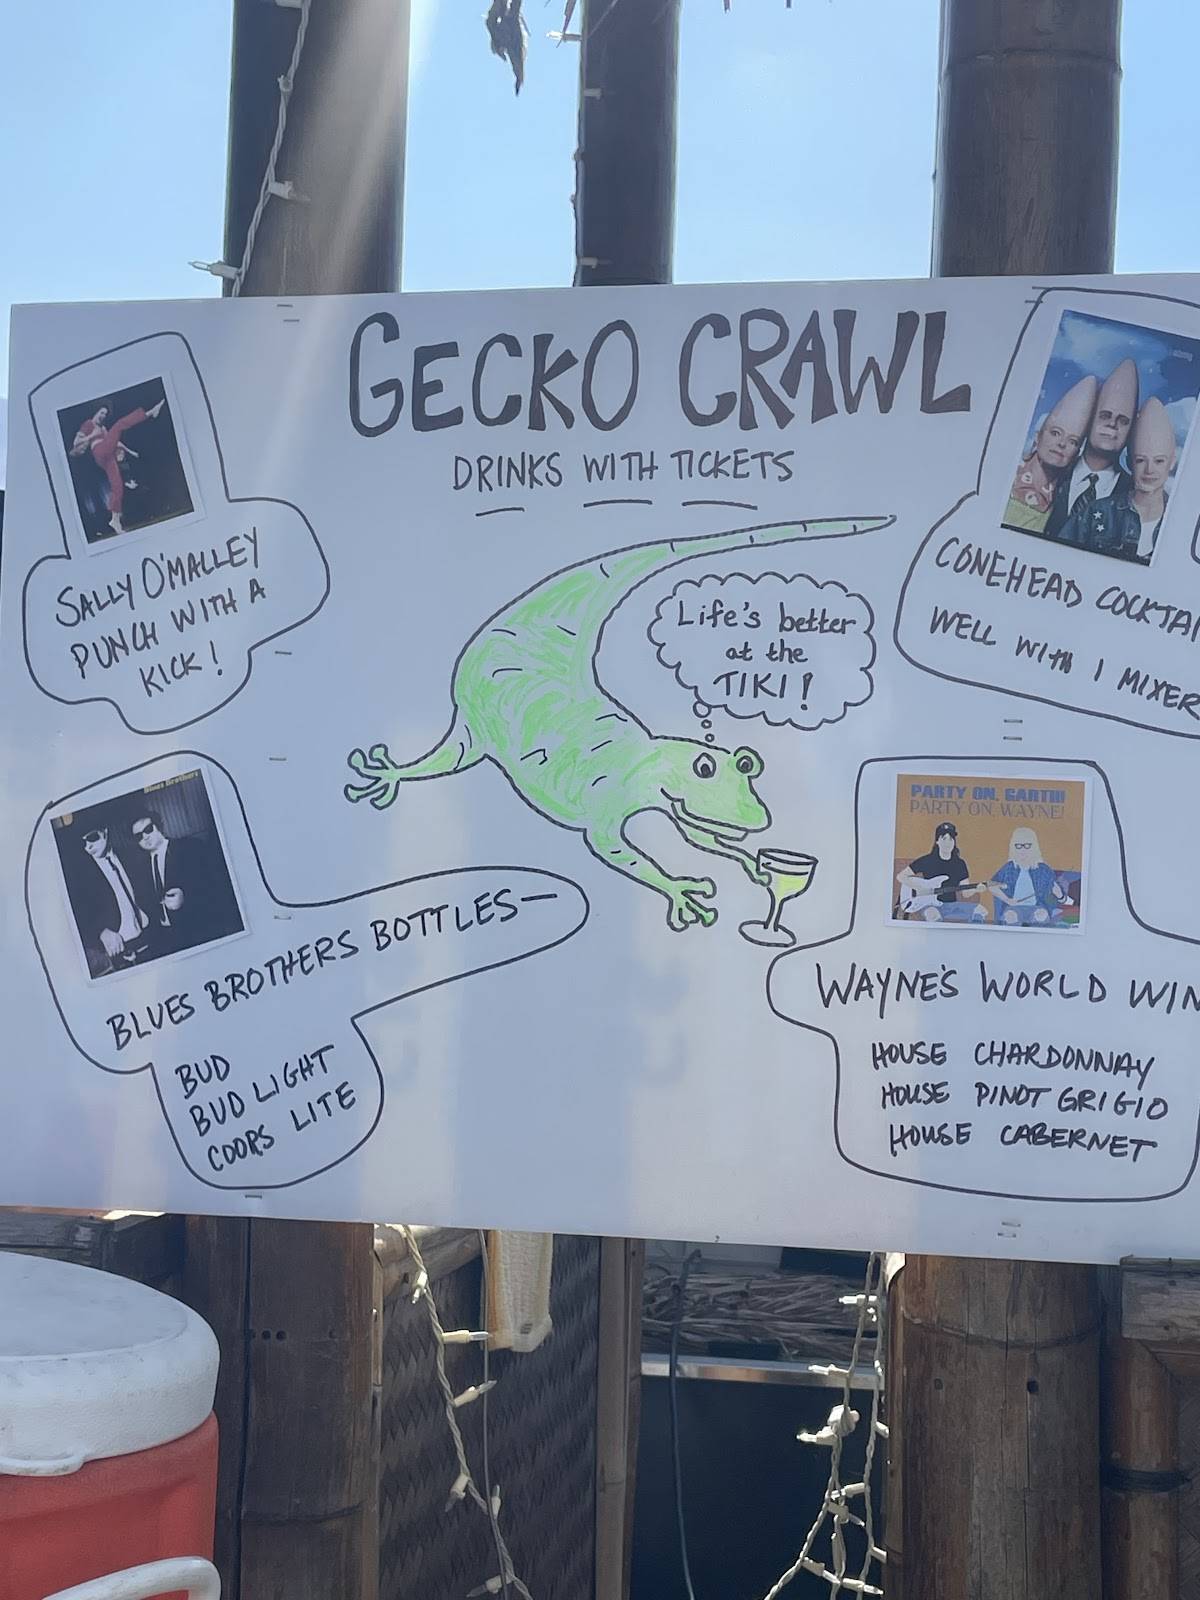 GECKO CRAWL
DRINKS WITH TICKETS
SALLY O'MALLEY
PUNCH WITH A
KICK!
Life's better
at the
TIKI!
CONEHEAD COCKTAI
WELL WITH 1 MIXER
Blues Brothers
BLUES BROTHERS BOTTLES—
BUD
BUD LIGHT
COORS LITE
PARTY ON, GARTH!
PARTY ON, WAYNE!
WAYNE'S WORLD WIN
HOUSE CHARDONNAY
HOUSE PINOT GRIGIO
HOUSE CABERNET